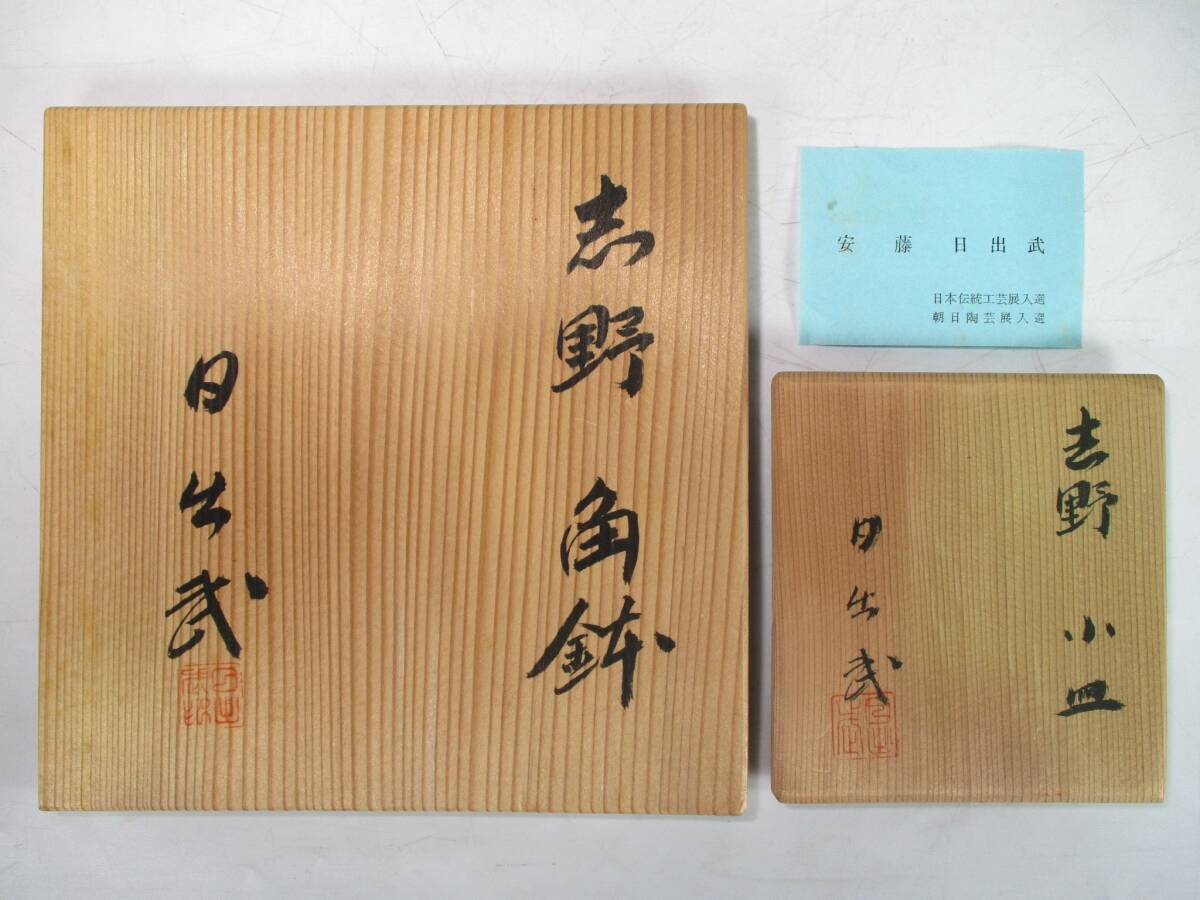 志野 角鉢
日出武
安藤 日出武
日本伝統工芸展入選
朝日陶芸展入選
志野 小皿
日出武